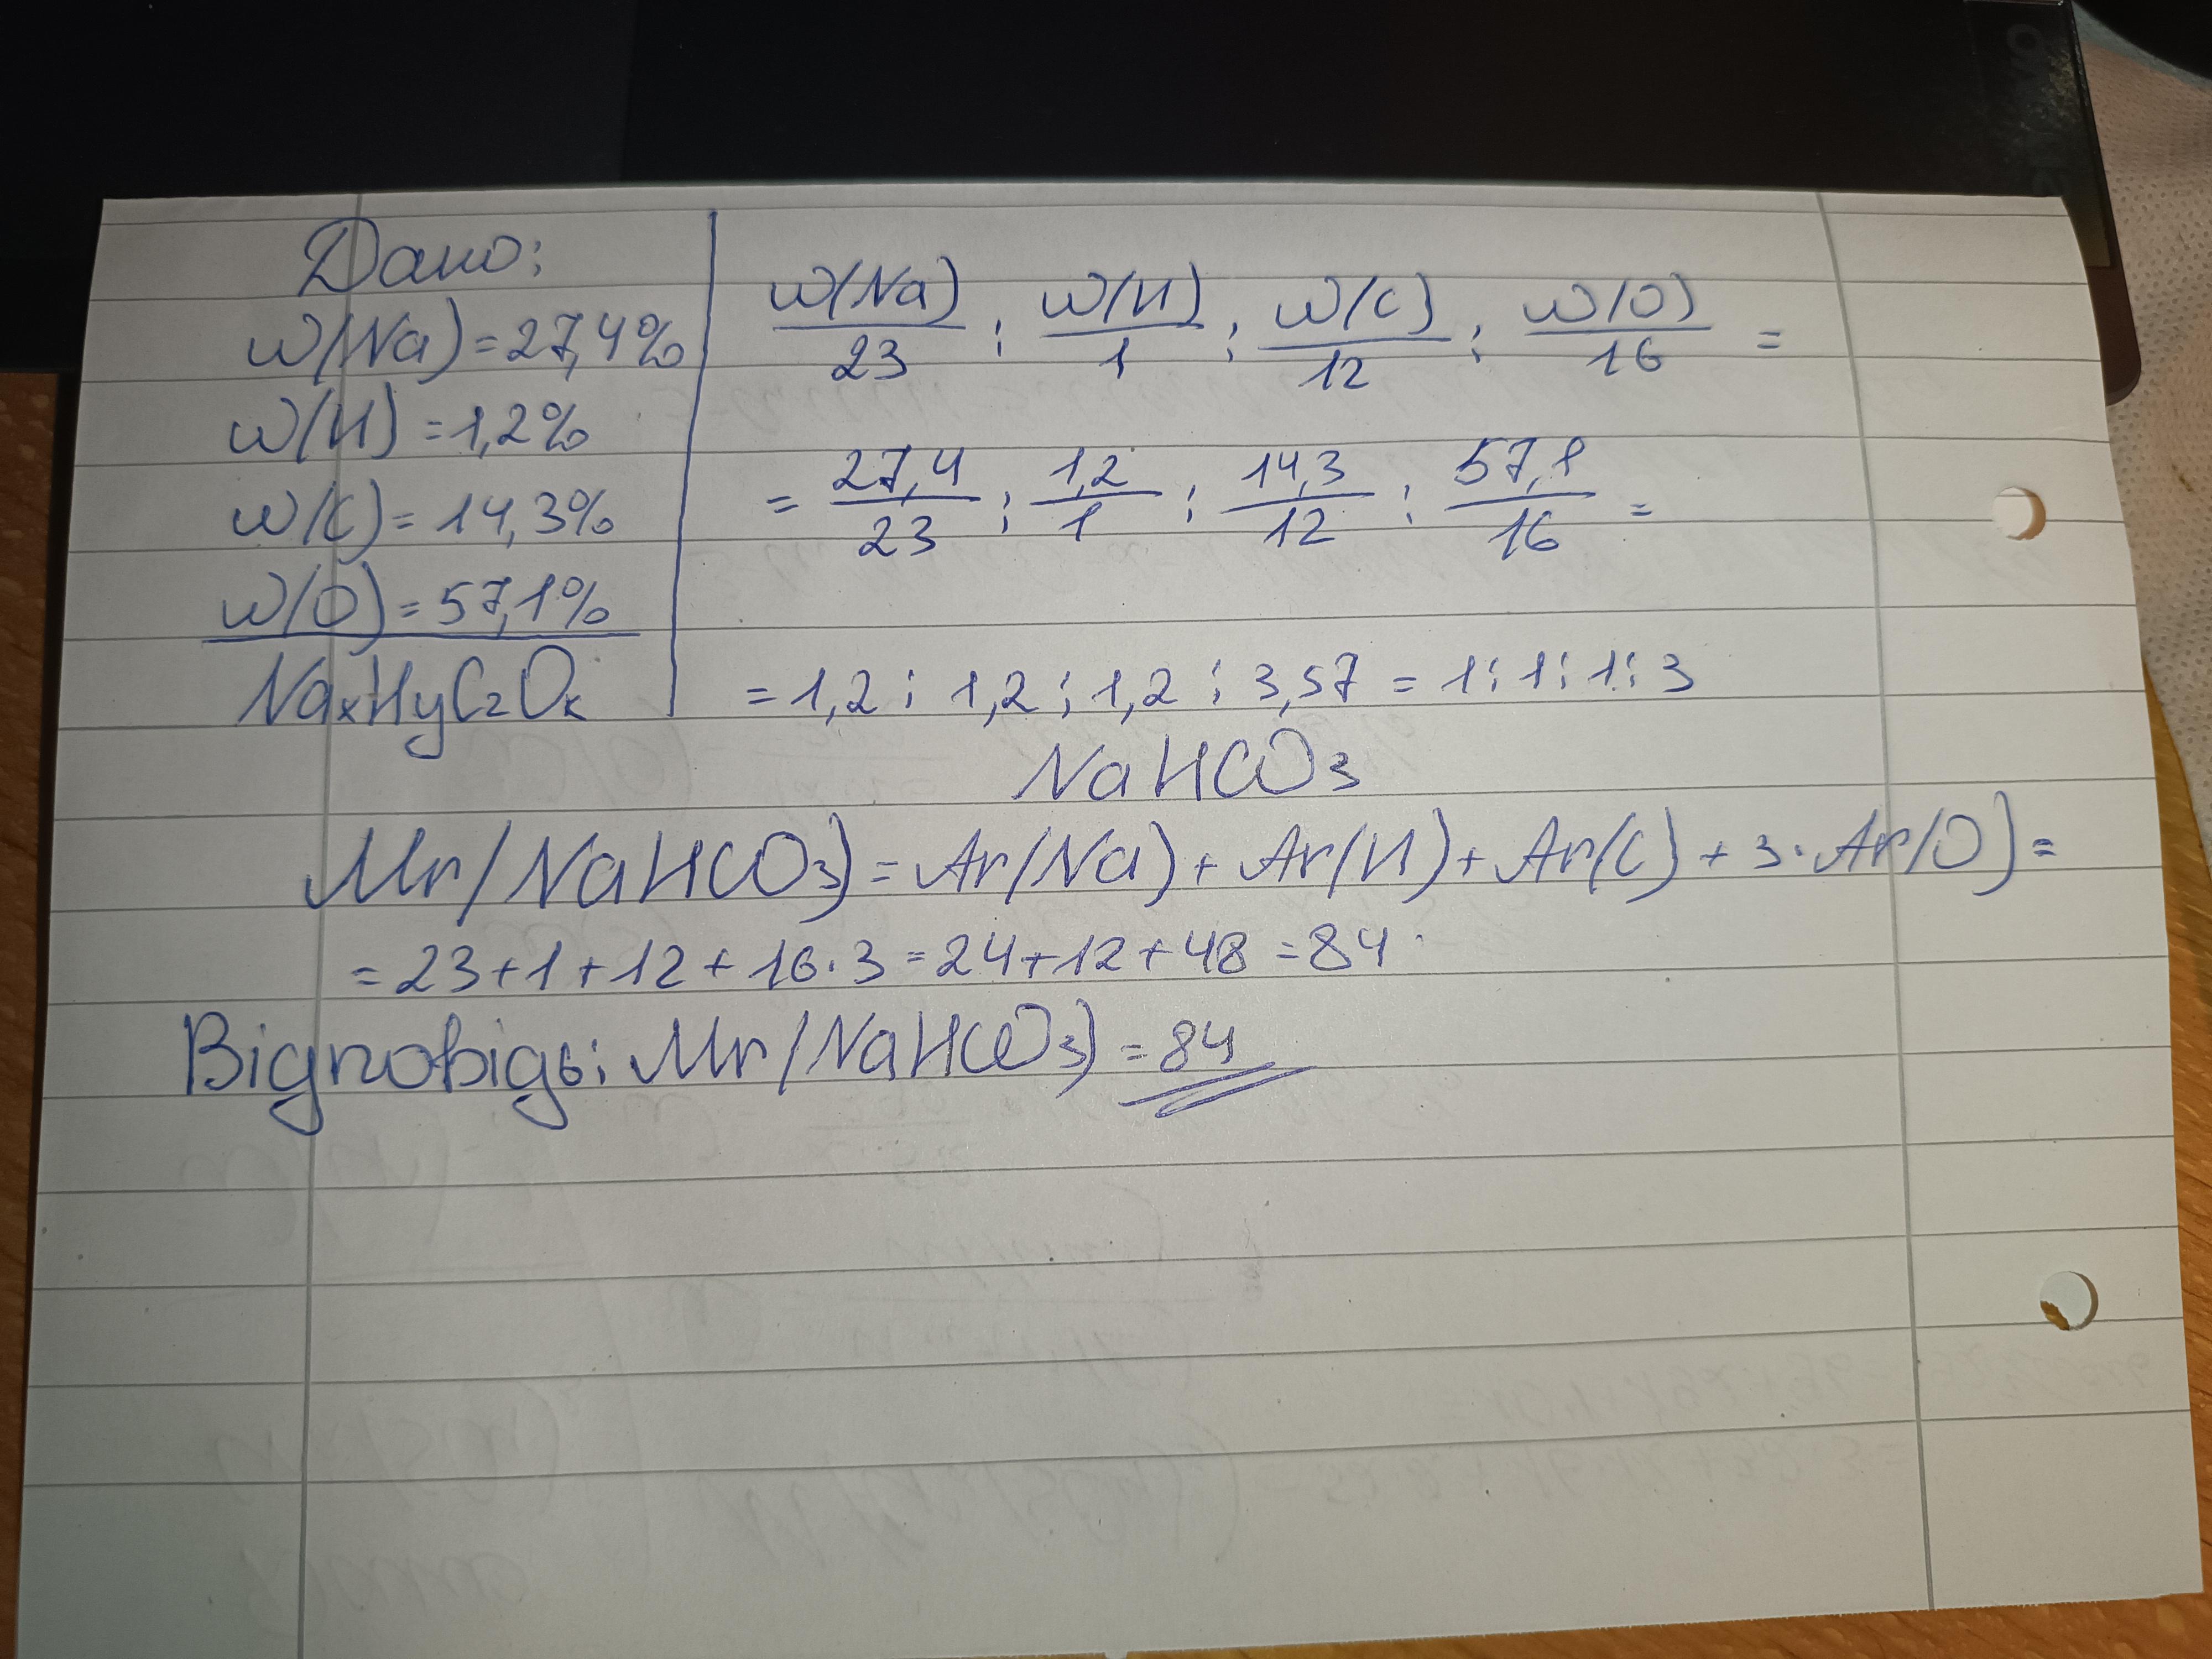 Дано:
w(Na) = 27,4%
w(H) = 1,2%
w(C) = 14,3%
w(O) = 57,1%
NaxHyCzOk
w(Na)/23 : w(H)/1 : w(C)/12 : w(O)/16 =
= 27,4/23 : 1,2/1 : 14,3/12 : 57,1/16 =
= 1,2 : 1,2 : 1,2 : 3,57 = 1 : 1 : 1 : 3
NaHCO3
Mr(NaHCO3) = Ar(Na) + Ar(H) + Ar(C) + 3 · Ar(O) =
= 23 + 1 + 12 + 16 · 3 = 24 + 12 + 48 = 84
Відповідь: Mr(NaHCO3) = 84